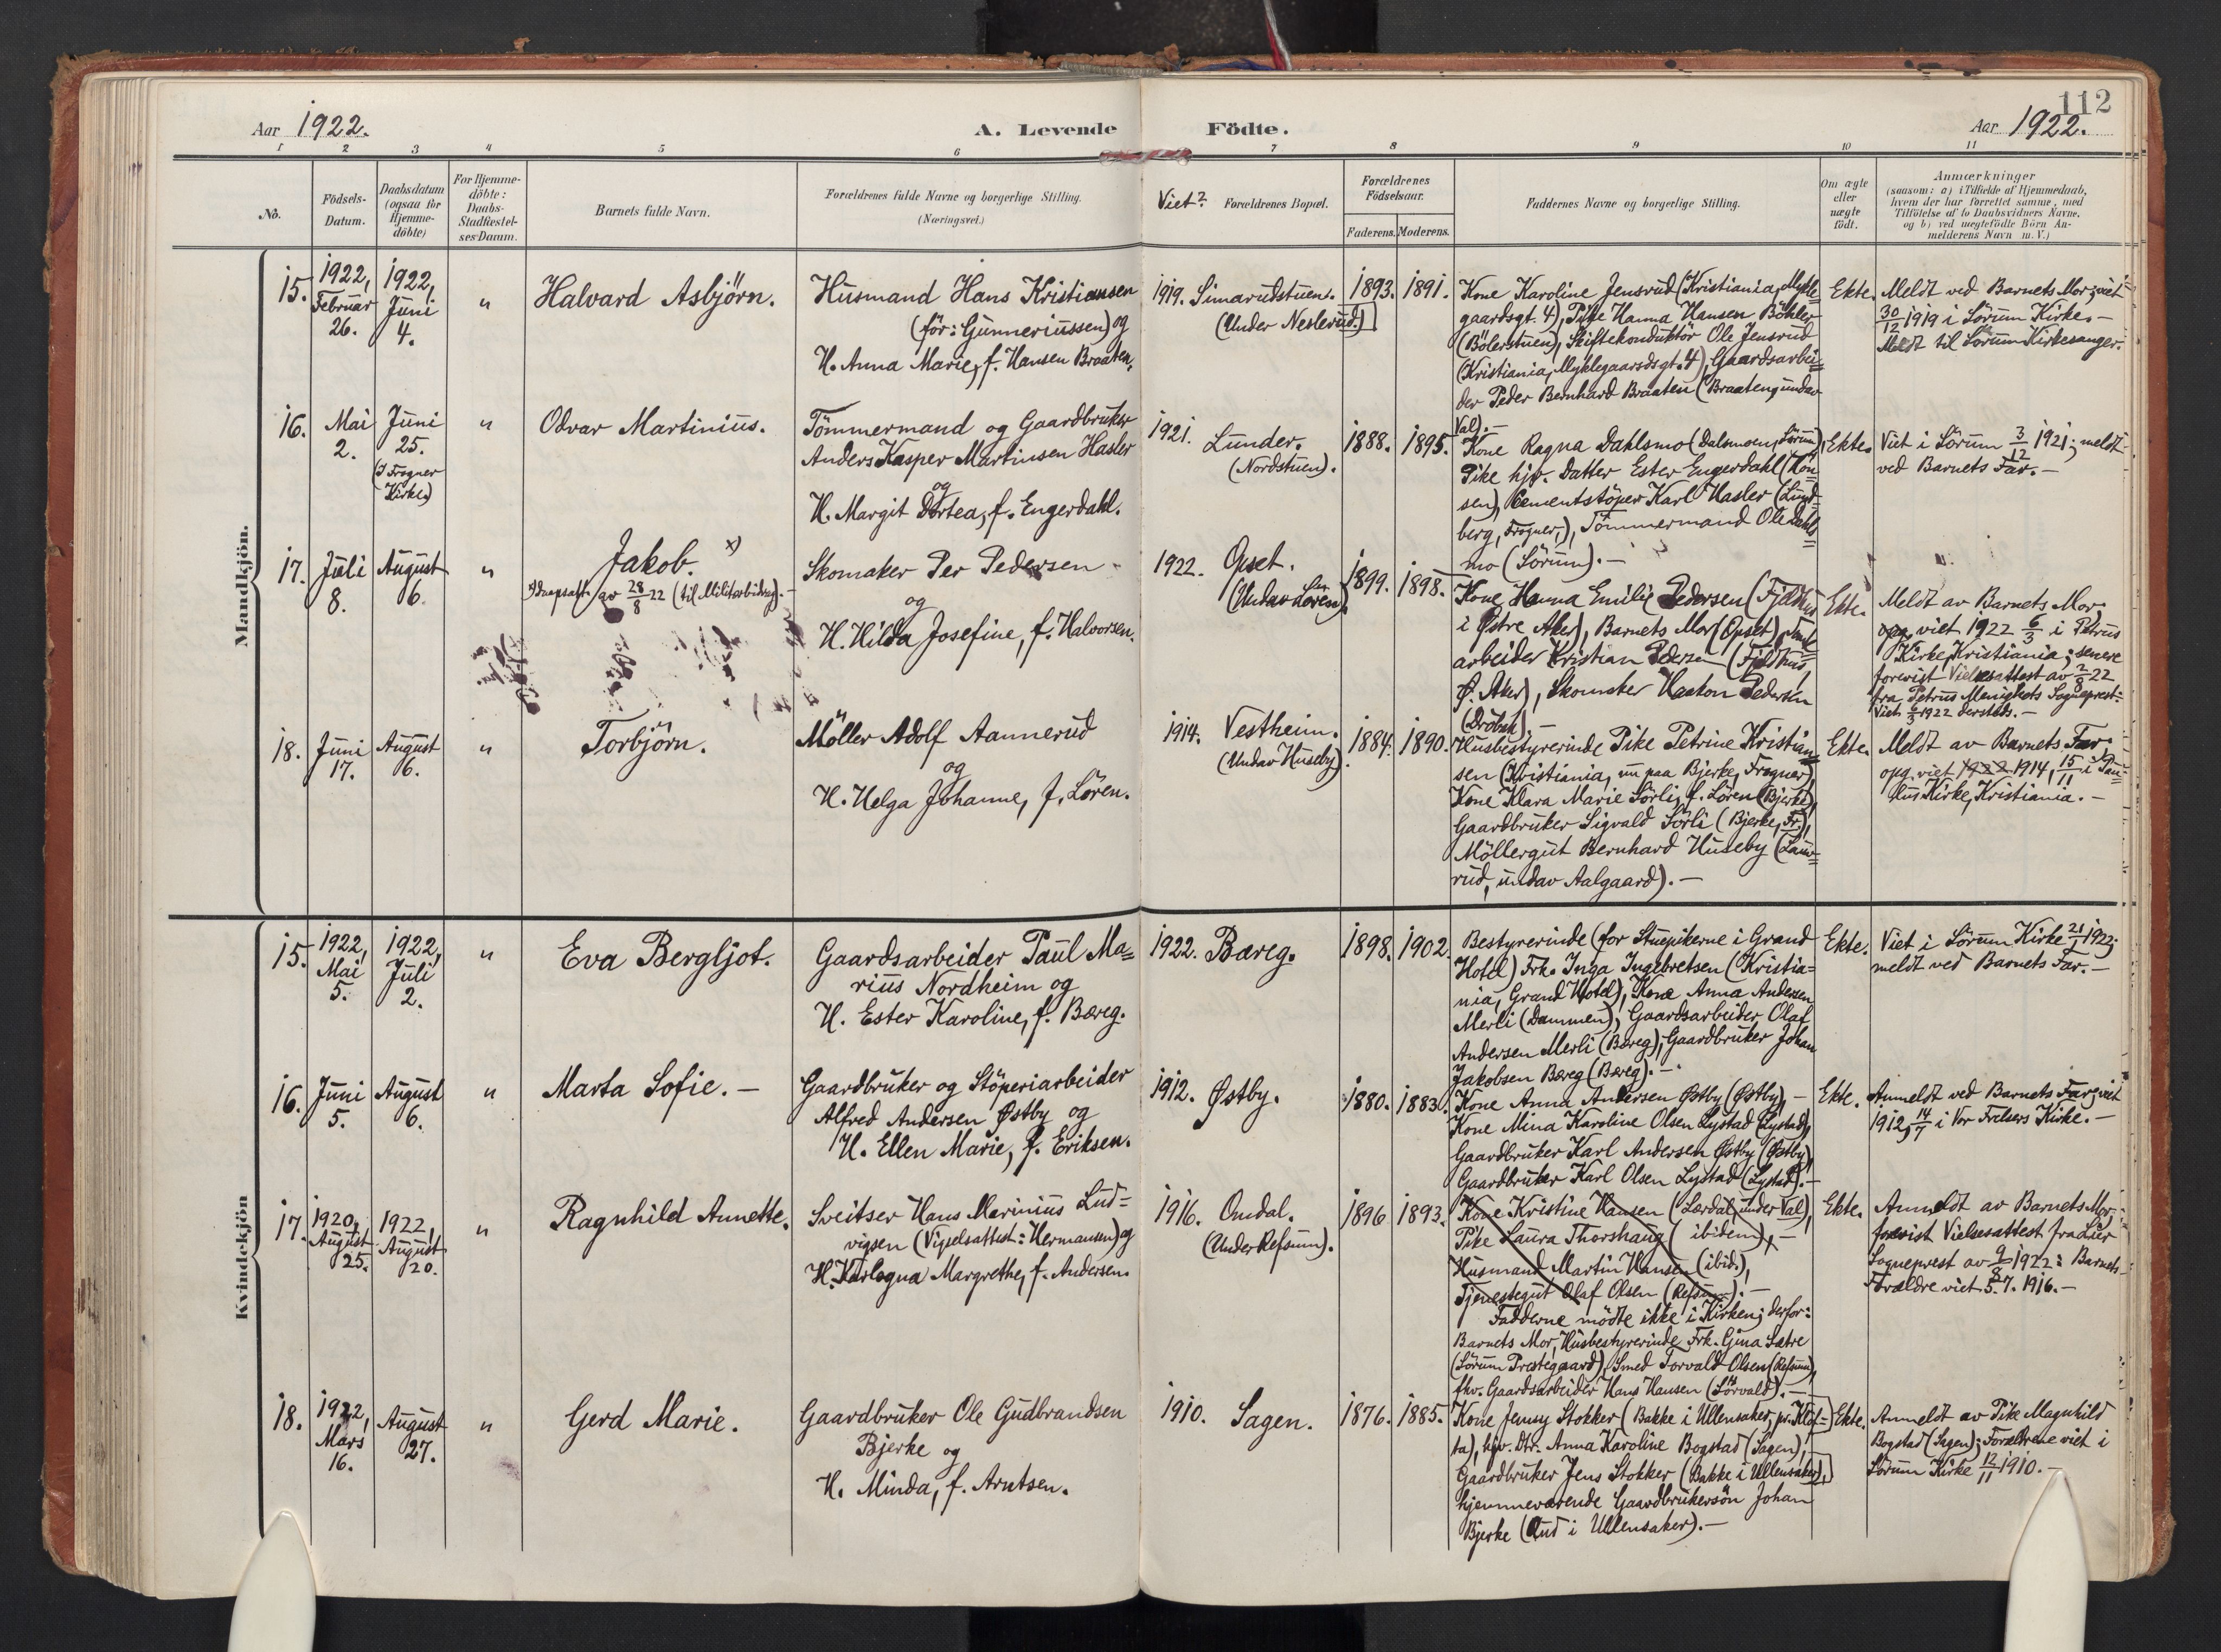 112
Aar 1922.
A. Levende Födte.
Aar 1922.
1 2 3 4 5 6 7 8 9 10 11
No.
Födsels-Datum.
Daabsdatum (ogsaa for Hjemme-döbte)
For Hjemme-döbte: Daabs-Stadfestel-ses-Datum.
Barnets fulde Navn.
Forældrenes fulde Navne og borgerlige Stilling.
(Næringsvei.)
Viet?
Forældrenes Bopæl.
Forældrenes Födselsaar.
Faderens. Moderens.
Faddernes Navne og borgerlige Stilling.
Om ægte eller uægte födt.
Anmærkninger
(saasom: a) i Tilfælde af Hjemmedaab,
hvem der har forrettet samme, med
Tilföielse af to Daabsvidners Navne,
og b) ved uægtefödte Börn An-
melderens Navn m. V.)
Mandkjön.
15.
1922, Februar 26.
1922, Juni 4.
"
Halvard Asbjörn.
Husmand Hans Kristiansen
(för: Gunneriussen) og
H. Anna Marie, f. Hansen Braaten.
1919. Simarudstuen.
(Under Neslerud.)
1893. 1891.
Kone Karoline Jensrud (Kristiania, Mykle=
gaardsgt. 4), Pike Hanna Hansen Böhler
(Bölerstuen), Skiftekonduktör Ole Jensrud
(Kristiania, Myklegaardsgt. 4), Gaardsarbei=
der Peder Bernhard Braaten (Braaten, undav
Val). —
Ekte.
Meldt ved Barnets Mor; viet
30/12 1919 i Sörum Kirke. —
Meldt til Sörum Kirkesanger.
16.
Mai 2.
Juni 25.
(I Frogner Kirke)
"
Odvar Martinius.
Tömmermand og Gaardbruker
Anders Kasper Martinsen Hasler
og
H. Margit Dortea, f. Engerdahl.
1921. Lunder,
(Nordstuen).
1888. 1895.
Kone Ragna Dahlsmo (Dalsmoen, Sörum)
Pike hjv. Datter Ester Engerdahl (Hön
sen), Cementstöper Karl Hasler (Lund=
berg, Frogner,), Tömmermand Ole Dahls=
mo (Sörum). —
Ekte.
Viet i Sörum 3/12 1921; meldt
ved Barnets Far. —
17.
Juli 8.
August 6.
"
Jakob. x)
av 28/8 22 (til Militærbidrag). —
Skomaker Per Pedersen
og
H. Hilda Josefine, f. Halvorsen.
1922. Opset.
(Undav Lören)
1899. 1898.
Kone Hanna Emilie Pedersen (Fjeldhus
i Östre Aker), Barnets Mor (Opset),
arbeider Kristian Pedersen (Fjeldhus,
Ø. Aker), Skomaker Haakon Pedersen
(Dröbak). —
Ekte.
Meldt av Barnets Mor;
opg. viet 1922 6/3 i Petrus
Kirke, Kristiania; senere
forevist Vielsesattest av 2/8 22
fra Petrus Menighets Sogneprest:
Viet 6/3 1922 dersteds. —
18.
Juni 17.
August 6.
"
Torbjörn.
Möller Adolf Aannerud
og
H. Helga Johanne, f. Lören.
1914. Vestheim.
(Undav Huseby).
1884. 1890.
Husbestyrerinde Pike Petrine Kristian=
sen (Kristiania, nu paa Bjerke, Frogner),
Kone Klara Marie Sörli, f. Lören (Bjerke),
Gaardbruker Sigvald Sörli (Bjerke, Fr.),
Möllergut Bernhard Huseby (Lauv=
rud, undav Aalgaard). —
Ekte.
Meldt av Barnets Far;
opg. viet 1914, 15/11 i Pau=
lus Kirke, Kristiania. —
Kvindekjön
15.
1922, Mai 5.
1922, Juli 2.
"
Eva Bergljot.
Gaardsarbeider Paul Ma=
rius Nordheim og
H. Ester Karoline, f. Bæreg.
1922. Bæreg.
1898. 1902.
Bestyrerinde (for Stuepikerne i Grand
Hotel) Frk. Inga Ingebretsen (Kristia=
nia, Grand Hotel), Kone Anna Andersen
Merli (Dammen), Gaardsarbeider Olaf
Andersen Merli (Bæreg), Gaardbruker Johan
Jakobsen Bæreg (Bæreg). —
Ekte.
Viet i Sörum Kirke 21/1 1922;
meldt ved Barnets Far. —
16.
Juni 5.
August 6.
"
Marta Sofie. —
Gaardbruker og Stöperiarbeider
Alfred Andersen Østby og
H. Ellen Marie, f. Eriksen.
1912. Østby.
1880. 1883.
Kone Anna Andersen Østby (Østby), —
Kone Mina Karoline Olsen Lystad (Lystad),
Gaardbruker Karl Andersen Østby (Østby),
Gaardbruker Karl Olsen Lystad (Lystad). —
Ekte.
Anmeldt ved Barnets Far; viet
1912, 14/7 i Vor Frelsers Kirke. —
17.
1920, August 25.
1922, August 20.
"
Ragnhild Annette.
Sveitser Hans Marinius Lud=
vigsen (Vigselsattest: Hermansen) og
H. Karlogna Margrethe, f. Andersen.
1916. Omdal.
(Under Refsum).
1896 1893.
Kone Kristine Hansen (Lærdal, under Val),
Pike Laura Thorshaug (ibidem), —
Husmand Martin Hansen (ibid.),
Tjenestegut Olaf Olsen (Refsum). —
Fadderne mödte ikke i Kirken; derfor:
Barnets Mor, Husbestyrerinde Frk. Gina Sætre
(Sörum Prestegaard), Smed Torvald Olsen (Refsum),
fhv. Gaardsarbeider Hans Hansen (Sörvald). —
Ekte.
Anmeldt av Barnets Mor;
forevist Vielsesattest fra Lier
Sogneprest av 9/8 1922: Barnets
Forældre viet 5. 7. 1916. —
18.
1922, Mars 16.
August 27.
"
Gerd Marie.
Gaardbruker Ole Gudbrandsen
Bjerke og
H. Minda, f. Arntsen.
1910. Sagen.
1876. 1885.
Kone Jenny Stokker (Bakke i Ullensaker, pr. Klöf=
ta), hjv. Dtr. Anna Karoline Bogstad (Sagen), —
Gaardbruker Jens Stokker (Bakke i Ullensaker),
hjemmeværende Gaardbrukersön Johan
Bjerke (Aud i Ullensaker). —
Ekte.
Anmeldt av Pike Magnhild
Bogstad (Sagen); Forældrene viet i
Sörum Kirke 12/11 1910. —